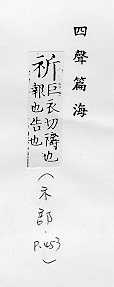 四聲篇海
祈
巨衣切禱也
報也告也
(示部.
P.453)